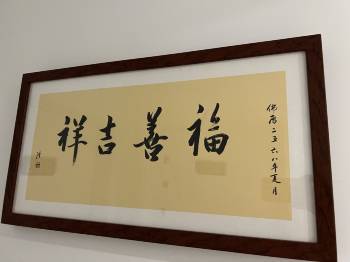 佛曆二五六八年夏月
福善吉祥